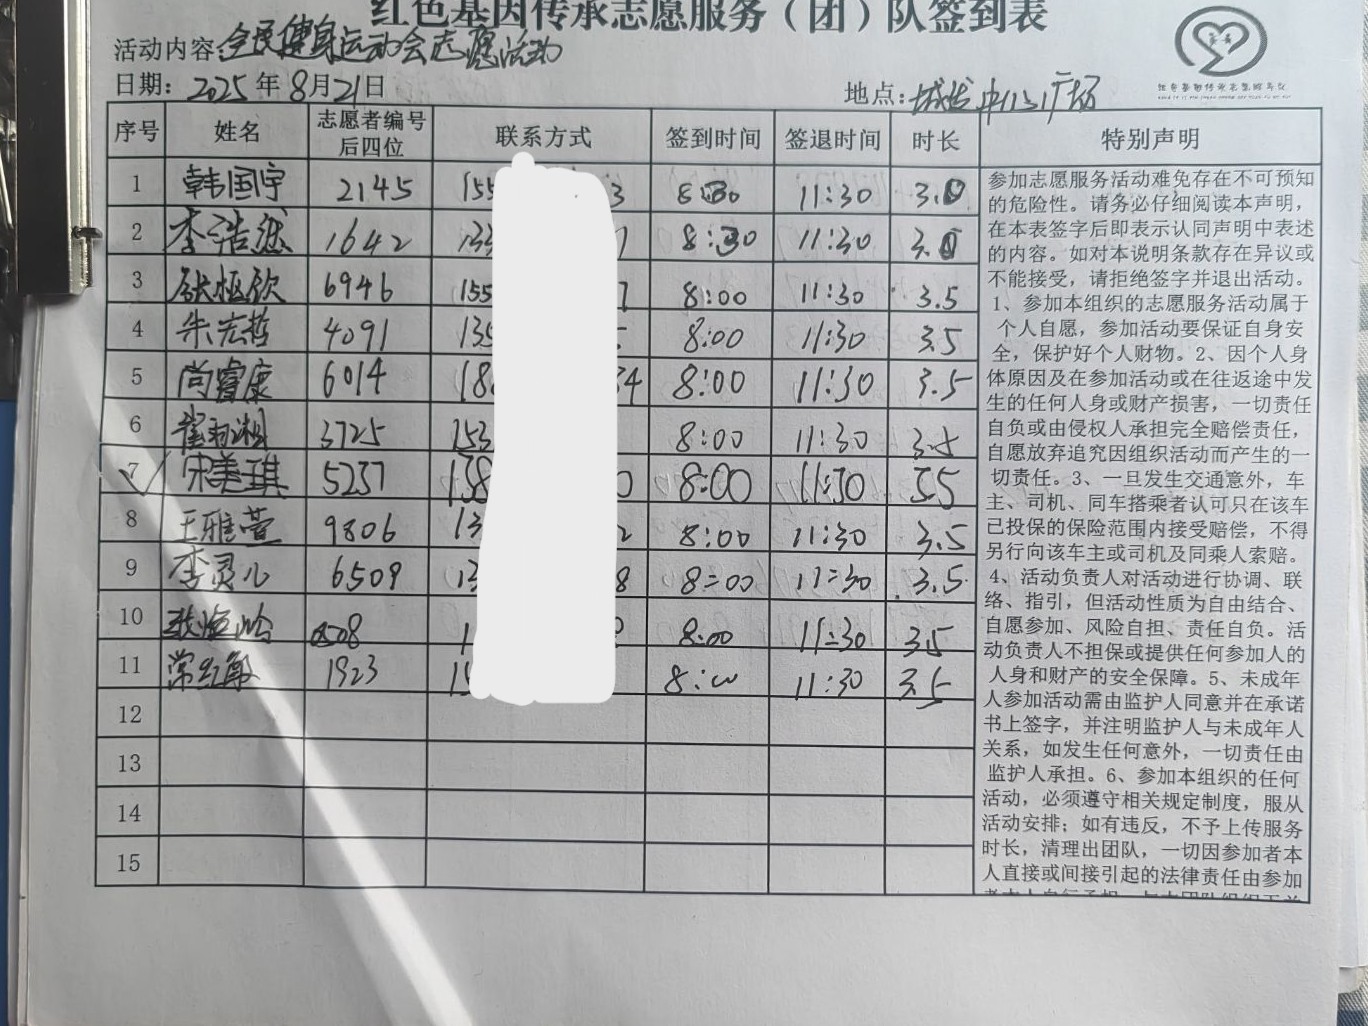 红色基因传承志愿服务（团）队签到表
活动内容:全民健身运动会志愿活动
日期: 2025年8月21日
地点: 广场
序号 姓名 志愿者编号后四位 联系方式 签到时间 签退时间 时长 特别声明
1 韩国宇 2145 155 3 8:30 11:30 3.0
2 李浩 1642 133 8:30 11:30 3.0
3 张恒钦 6946 155 8:00 11:30 3.5
4 朱宏哲 4091 135 8:00 11:30 3.5
5 尚睿康 6014 18 34 8:00 11:30 3.5
6 3725 153 8:00 11:30 3.5
7 宋美琪 5237 138 0 8:00 11:30 3.5
8 王雅萱 9806 13 2 8:00 11:30 3.5
9 李灵儿 6509 13 8 8:00 11:30 3.5
10 0508 1 8:00 11:30 3.5
11 常红 1923 15 8:00 11:30 3.5
12
13
14
15
参加志愿服务活动难免存在不可预知
的危险性。请务必仔细阅读本声明，
在本表签字后即表示认同声明中表述
的内容。如对本说明条款存在异议或
不能接受，请拒绝签字并退出活动。
1、参加本组织的志愿服务活动属于
个人自愿，参加活动要保证自身安
全，保护好个人财物。2、因个人身
体原因及在参加活动或在往返途中发
生的任何人身或财产损害，一切责任
自负或由侵权人承担完全赔偿责任，
自愿放弃追究因组织活动而产生的一
切责任。3、一旦发生交通意外，车
主、司机、同车搭乘者认可只在该车
已投保的保险范围内接受赔偿，不得
另行向该车主或司机及同乘人索赔。
4、活动负责人对活动进行协调、联
络、指引，但活动性质为自由结合、
自愿参加、风险自担、责任自负。活
动负责人不担保或提供任何参加人的
人身和财产的安全保障。5、未成年
人参加活动需由监护人同意并在承诺
书上签字，并注明监护人与未成年人
关系，如发生任何意外，一切责任由
监护人承担。6、参加本组织的任何
活动，必须遵守相关规定制度，服从
活动安排；如有违反，不予上传服务
时长，清理出团队，一切因参加者本
人直接或间接引起的法律责任由参加